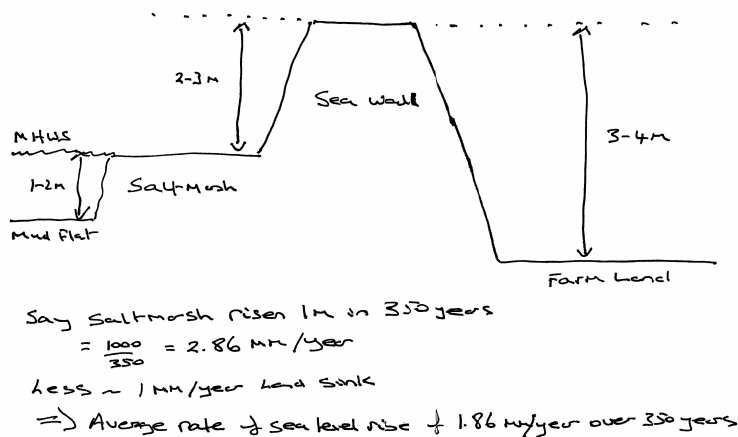 2-3m
Sea Wall
3-4m
MHWS
1-2m
Saltmarsh
Mud flat
Farm Land
Say Saltmarsh risen 1m in 350 years
= 1000/350 = 2.86 mm/year
Less ~ 1mm/year Land Sink
=> Average rate of sea level rise of 1.86 mm/year over 350 years